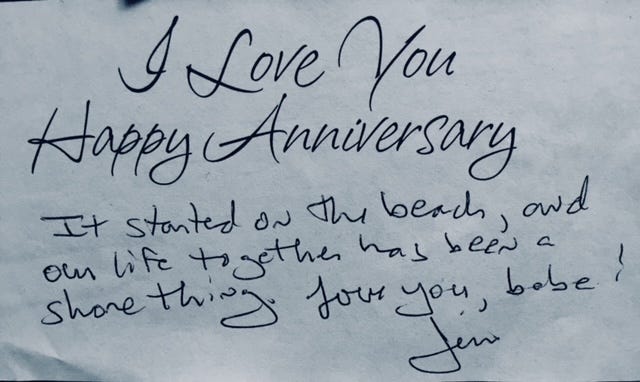 I Love You
Happy Anniversary
It started on the beach, and
our life together has been a
shore thing. Love you, babe!
Jen